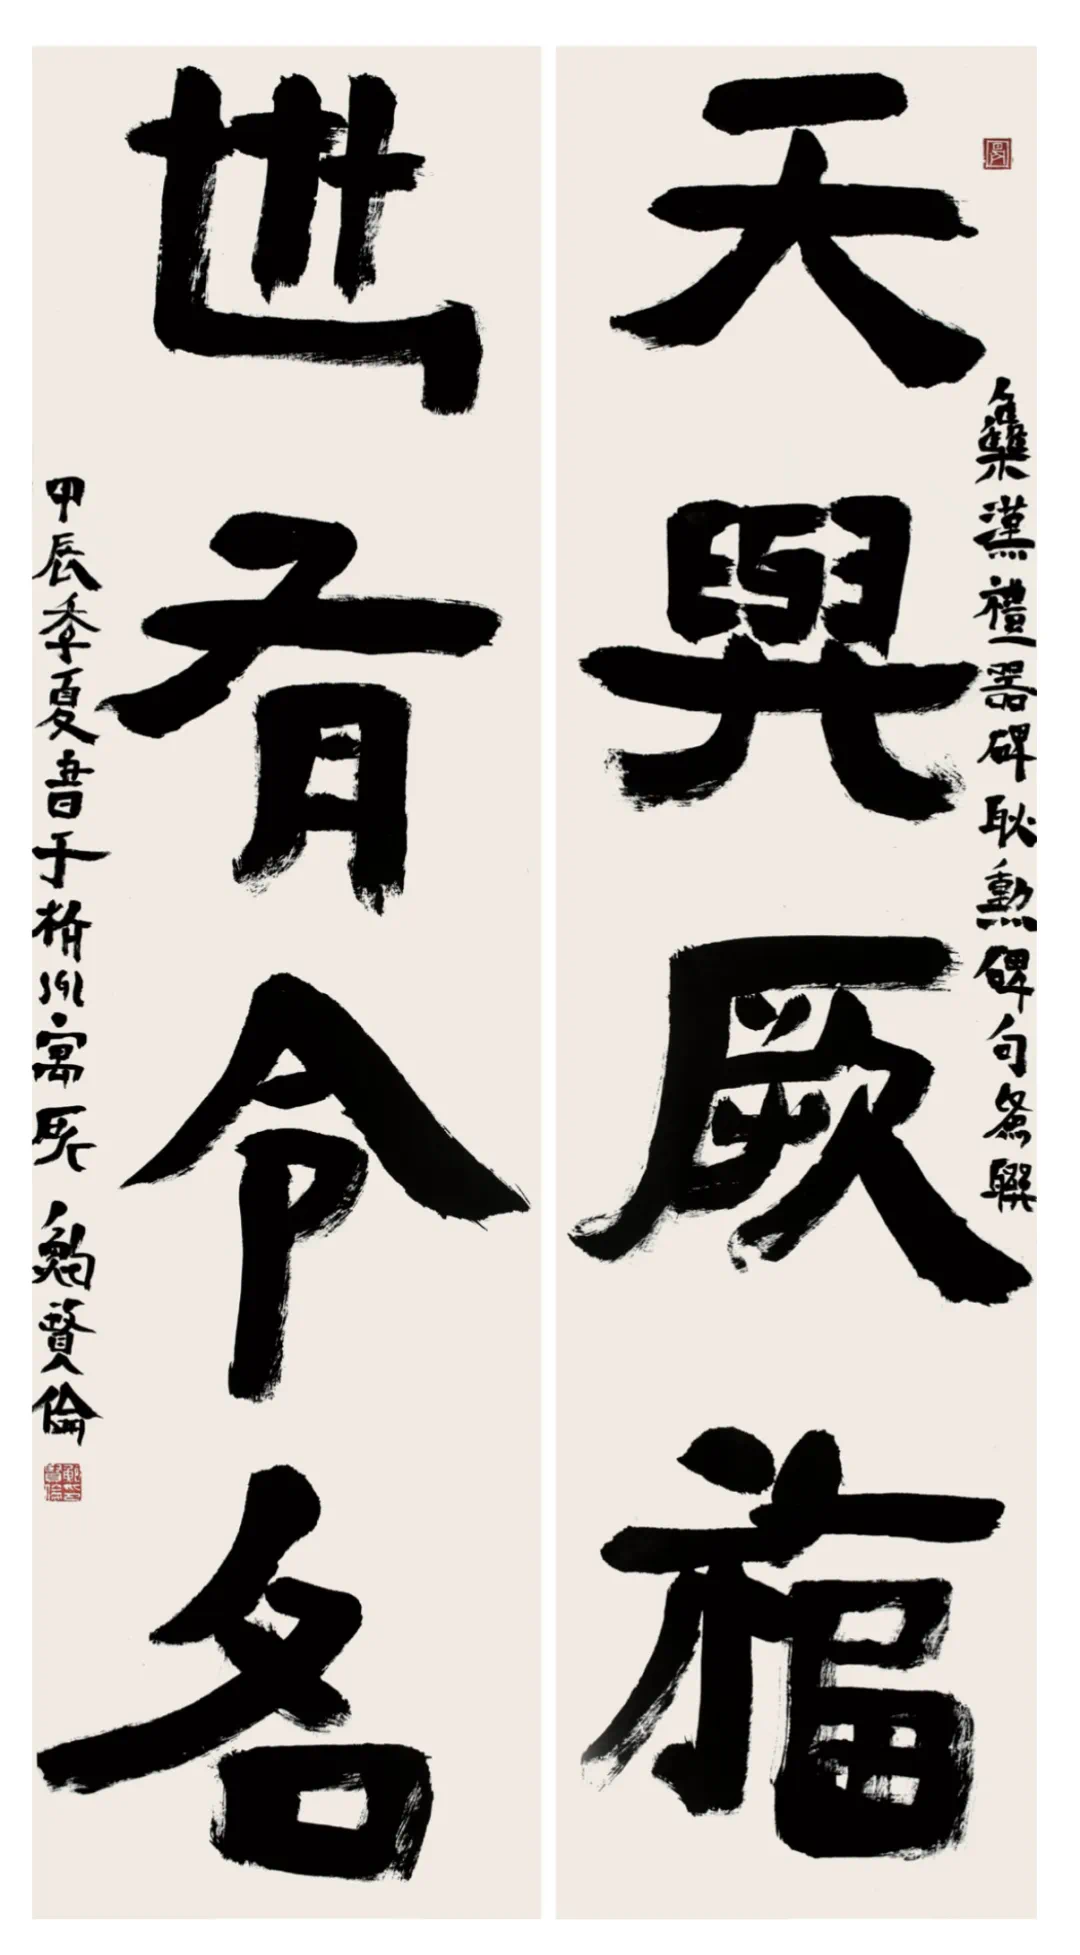 天與厥福
雧漢禮器碑耿勳碑句為聯
世有令名
甲辰季夏書于杭州寓所 鮑賢倫